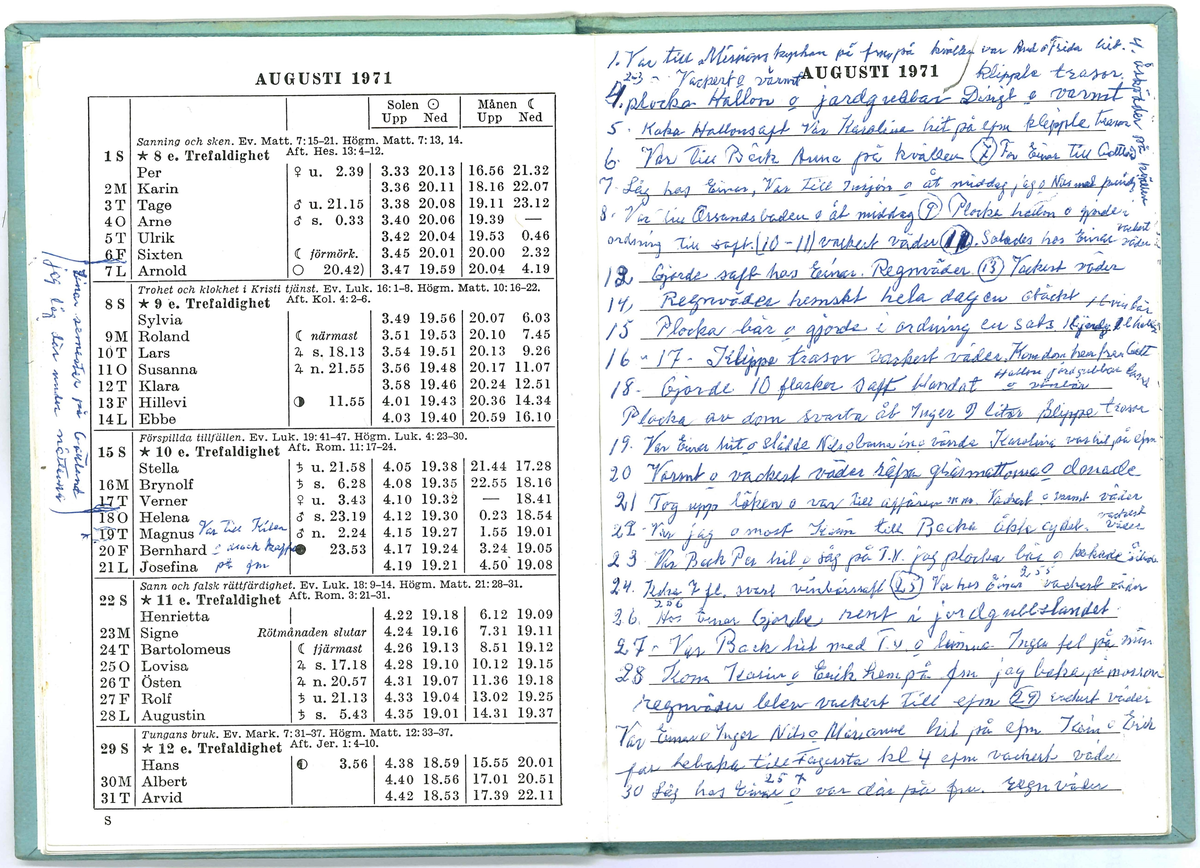 AUGUSTI 1971
Solen ☉ Månen ☾
Upp Ned Upp Ned
Sanning och sken. Ev. Matt. 7:15-21. Högm. Matt. 7:13, 14.
1 S ★ 8 e. Trefaldighet Aft. Hes. 13:4-12.
Per ♀ u. 2.39 3.33 20.13 16.56 21.32
2 M Karin 3.36 20.11 18.16 22.07
3 T Tage ♂ u. 21.15 3.38 20.08 19.11 23.12
4 O Arne ♂ s. 0.33 3.40 20.06 19.39 —
5 T Ulrik 3.42 20.04 19.53 0.46
6 F Sixten ☾ förmörk. 3.45 20.01 20.00 2.32
7 L Arnold ○ 20.42) 3.47 19.59 20.04 4.19
Trohet och klokhet i Kristi tjänst. Ev. Luk. 16:1-8. Högm. Matt. 10:16-22.
8 S ★ 9 e. Trefaldighet Aft. Kol. 4:2-6.
Sylvia 3.49 19.56 20.07 6.03
9 M Roland ☾ närmast 3.51 19.53 20.10 7.45
10 T Lars ♃ s. 18.13 3.54 19.51 20.13 9.26
11 O Susanna ♃ n. 21.55 3.56 19.48 20.17 11.07
12 T Klara 3.58 19.46 20.24 12.51
13 F Hillevi ◑ 11.55 4.01 19.43 20.36 14.34
14 L Ebbe 4.03 19.40 20.59 16.10
Förspillda tillfällen. Ev. Luk. 19:41-47. Högm. Luk. 4:23-30.
15 S ★ 10 e. Trefaldighet Aft. Rom. 11:17-24.
Stella ♄ u. 21.58 4.05 19.38 21.44 17.28
16 M Brynolf ♄ s. 6.28 4.08 19.35 22.55 18.16
17 T Verner ♀ u. 3.43 4.10 19.32 — 18.41
18 O Helena ♂ s. 23.19 4.12 19.30 0.23 18.54
19 T Magnus Var till ♂ n. 2.24 4.15 19.27 1.55 19.01
20 F Bernhard drack kaffe ● 23.53 4.17 19.24 3.24 19.05
21 L Josefina på fm 4.19 19.21 4.50 19.08
Sann och falsk rättfärdighet. Ev. Luk. 18:9-14. Högm. Matt. 21:28-31.
22 S ★ 11 e. Trefaldighet Aft. Rom. 3:21-31.
Henrietta 4.22 19.18 6.12 19.09
23 M Signe Rötmånaden slutar 4.24 19.16 7.31 19.11
24 T Bartolomeus ☾ fjärmast 4.26 19.13 8.51 19.12
25 O Lovisa ♃ s. 17.18 4.28 19.10 10.12 19.15
26 T Östen ♃ n. 20.57 4.31 19.07 11.36 19.18
27 F Rolf ♄ u. 21.13 4.33 19.04 13.02 19.25
28 L Augustin ♄ s. 5.43 4.35 19.01 14.31 19.37
Tungans bruk. Ev. Mark. 7:31-37. Högm. Matt. 12:33-37.
29 S ★ 12 e. Trefaldighet Aft. Jer. 1:4-10.
Hans ◐ 3.56 4.38 18.59 15.55 20.01
30 M Albert 4.40 18.56 17.01 20.51
31 T Arvid 4.42 18.53 17.39 22.11
S
Einar semester på Gotland
jag låg där under nätterna
AUGUSTI 1971
1. Var till Missions kyrkan på fm, på kvällen var And o Frida hit.
2-3 - Vackert o varmt klippte trasor.
4. plocka Hallon o jordgubbar Dirigt o varmt
4. åskväder på kvällen
5. Koka Hallonsaft Var Karolina hit på efm klippte trasor
6. Var till Bäck Anna på kvällen (7) Far Einar till Gottland
7. Låg hos Einar, Var till Insjön o åt middag jag o Nils med familj
8. Var till Orsandsbaden o åt middag (9) Plocka hallon o gjorde
ordning till saft. (10-11) vackert väder (11). Sålades hos Einar vackert väder
12. Gjorde saft hos Einar. Regnväder. (13) Vackert väder
14, Regnväder hemskt hela dagen otäckt
15 Plocka bär o gjorde i ordning en sats
16-17- Klippe trasor vackert väder. Kom dom hem från Gott
18. Gjorde 10 flasker saft blandat Hallon jordgubbar o vinbär
Plocka av dom svarta åt Inger 9 liter klippe trasor
19. Var Einar hit o Nils Karolina var hit på efm
20 Varmt o vackert väder gräsmattorna o danade
21 Tog upp löken o var till affären m.m. Vackert o varmt väder
22- Var jag o most Karin till Backa åkte cydel. vackert väder
23. Var Back Per hit o såg på T.V. jag plocka bär o kokade
24. Koka 7 fl. svart vinbärsaft (25) Var hos Einar 255 vackert väder
26. 256 Hos Einar Gjorde rent i jordgubbslandet.
27- Var Back hit med T.V o lämna Inga fel på min
28 Kom Karin o Erik hem på fm jag baka på morson
regnväder blev vackert till efm (29) vackert väder
Var Einar o Inger Nils o Marianne hit på efm Karin o Erik
far tebaka till Fagersta kl 4 efm vackert väde
30 Låg hos Einar 257 o var där på fm. regnväder